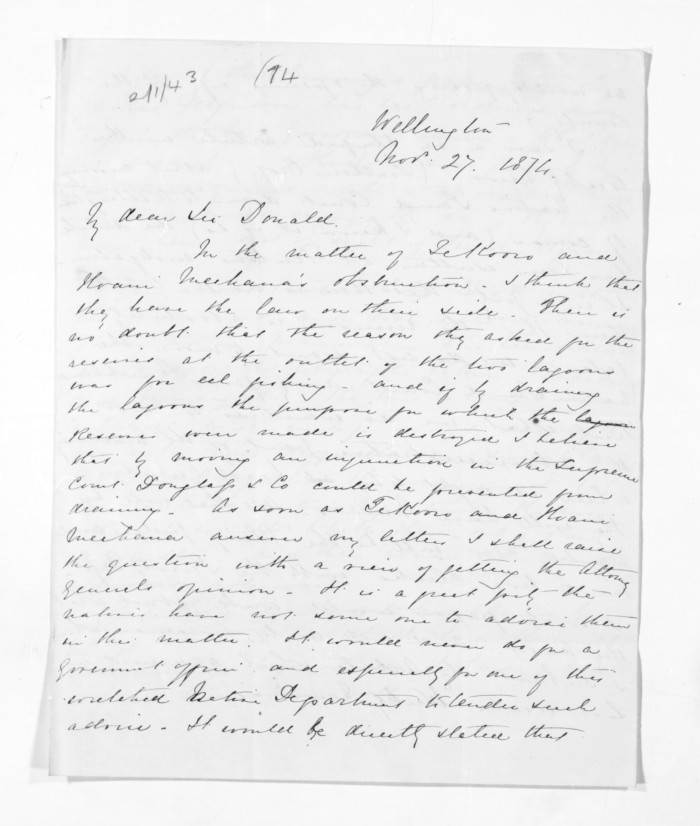 2/1/43 (94
Wellington
Nov. 27. 1874.
My dear Sir Donald.
In the matter of TeKooro and
Hoani Meehana's obstruction - I think that
they have the law on their side. There is
no doubt that the reason they asked for the
reserves at the outlet of the two lagoons
was for eel fishing - and if by draining
the lagoons the purpose for which the lagoon
Reserves were made is destroyed I believe
that by moving an injunction in the Supreme
Court Douglass & Co could be prevented from
draining. As soon as TeKooro and Hoani
Meehana answer my letters I shall raise
the question with a view of getting the Attorney
Generals opinion - It is a great pity the
natives have not some one to advise them
in the matter. It would never do for a
Government officer and especially for one of this
wretched Native Department to tender such
advice - It would be directly stated that